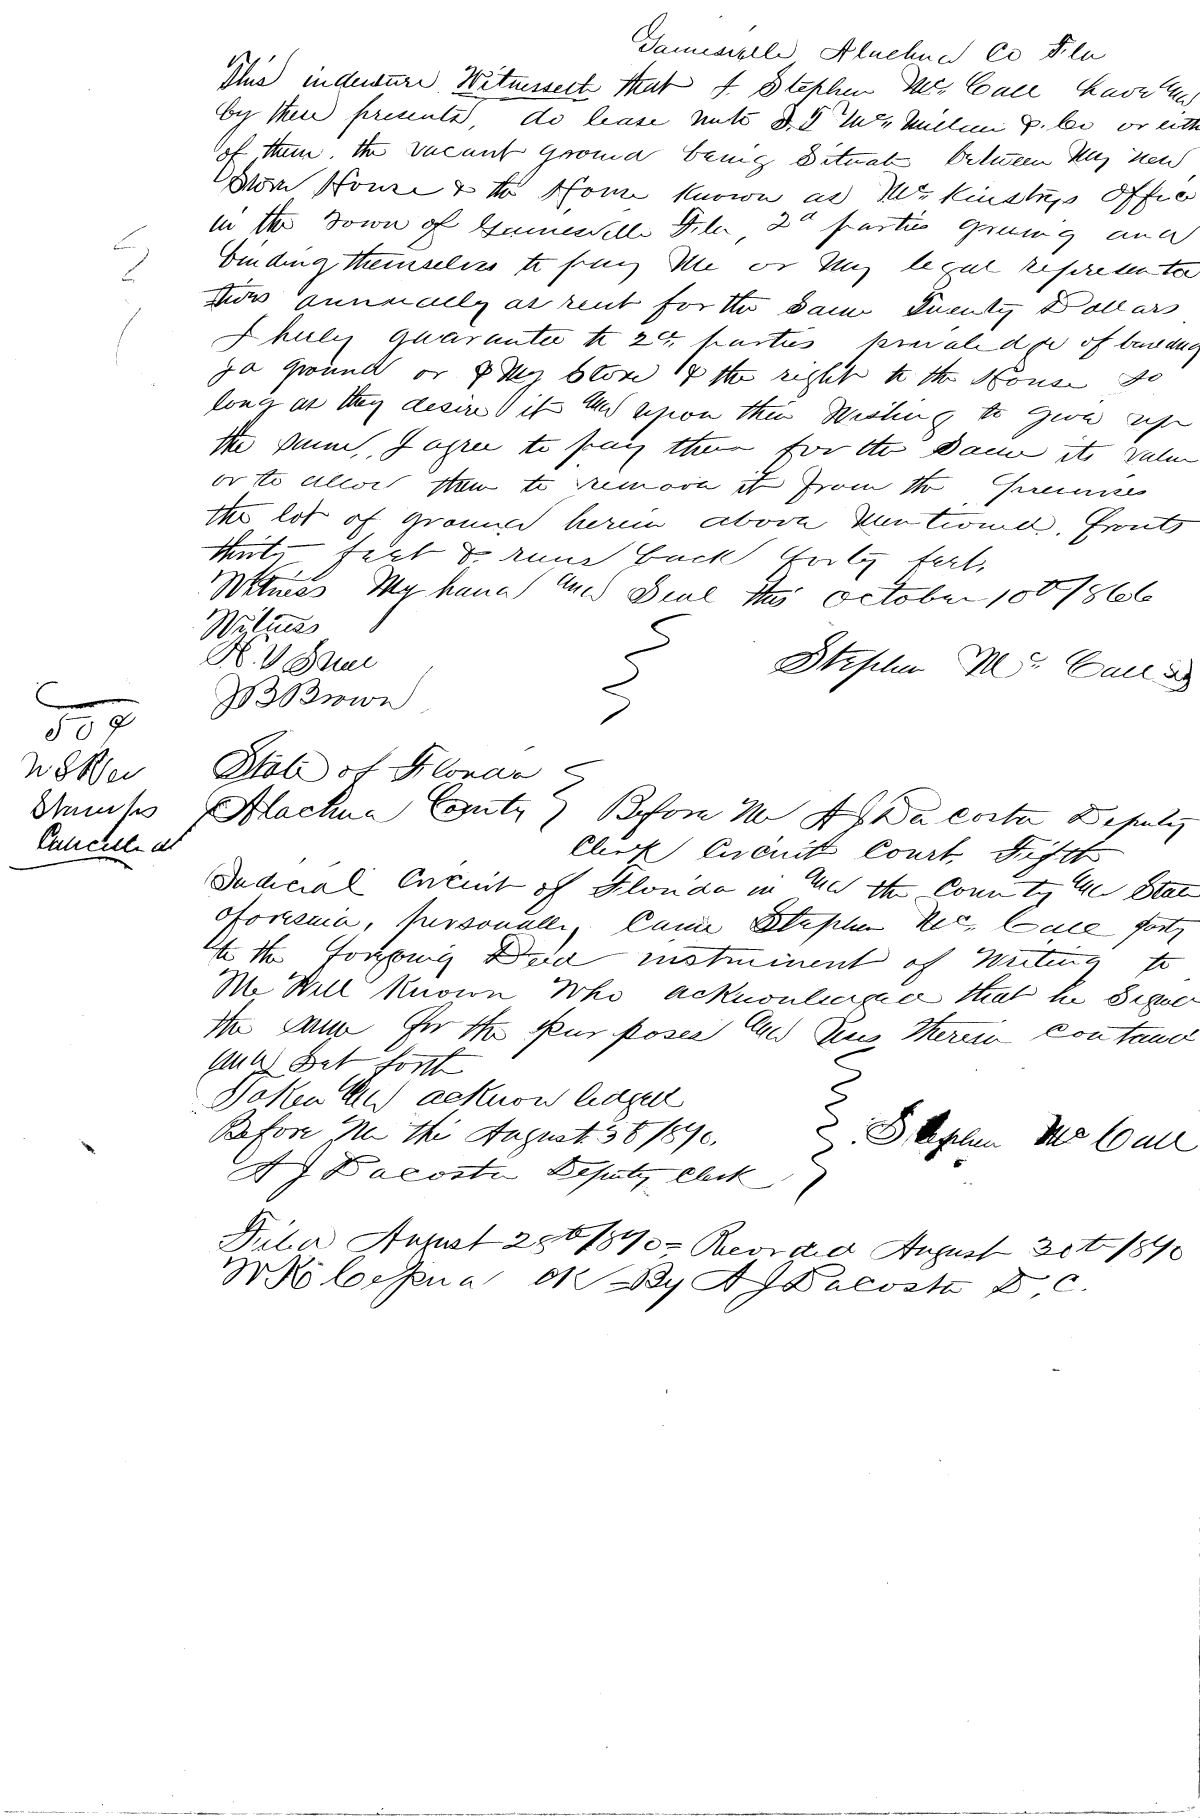 Gainesville Alachua Co Fla
This indenture Witnesseth that I Stephen Mc. Call have and
by these presents, do lease unto Mc. Millen & Co or eith
of them. the vacant ground being Situate between My new
Store House & the House known as Mc Kinstrys Office
in the Town of Gainesville Fla, 2d parties giving and
binding themselves to pay Me or My legal representa
tives annually as rent for the Same Twenty Dollars
I hereby guarantee to 2d parties priveledge of building
ground or My Store & the right to the House so
long as they desire it and upon their Wishing to give up
the same, I agree to pay them for the Same its value
or to allow them to remove it from the premises
the lot of ground herein above Mentioned, fronts
thirty feet & runs back forty feet.
Witness My hand and Seal this October 10th/866
Witness
Stephen Mc Call
J B Brown
50¢
Rev
Stamps
Cancelled
State of Florida
Alachua County Before Me A J Dacosta Deputy
Clerk Circuit Court Fifth
Judicial Circuit of Florida in and the County and State
aforesaid, personally Came Stephen Mc. Call party
to the foregoing Deed instrument of Writing to
Me Well Known Who acknowledged that he Signed
the same for the purposes and Uses therein contand
and Set forth
Taken and acknowledged
Before Me this August 30/870. Stephen Mc Call
A J Dacosta Deputy Clerk
Filed August 29th/870 = Recorded August 30th/870
By A J Dacosta D. C.